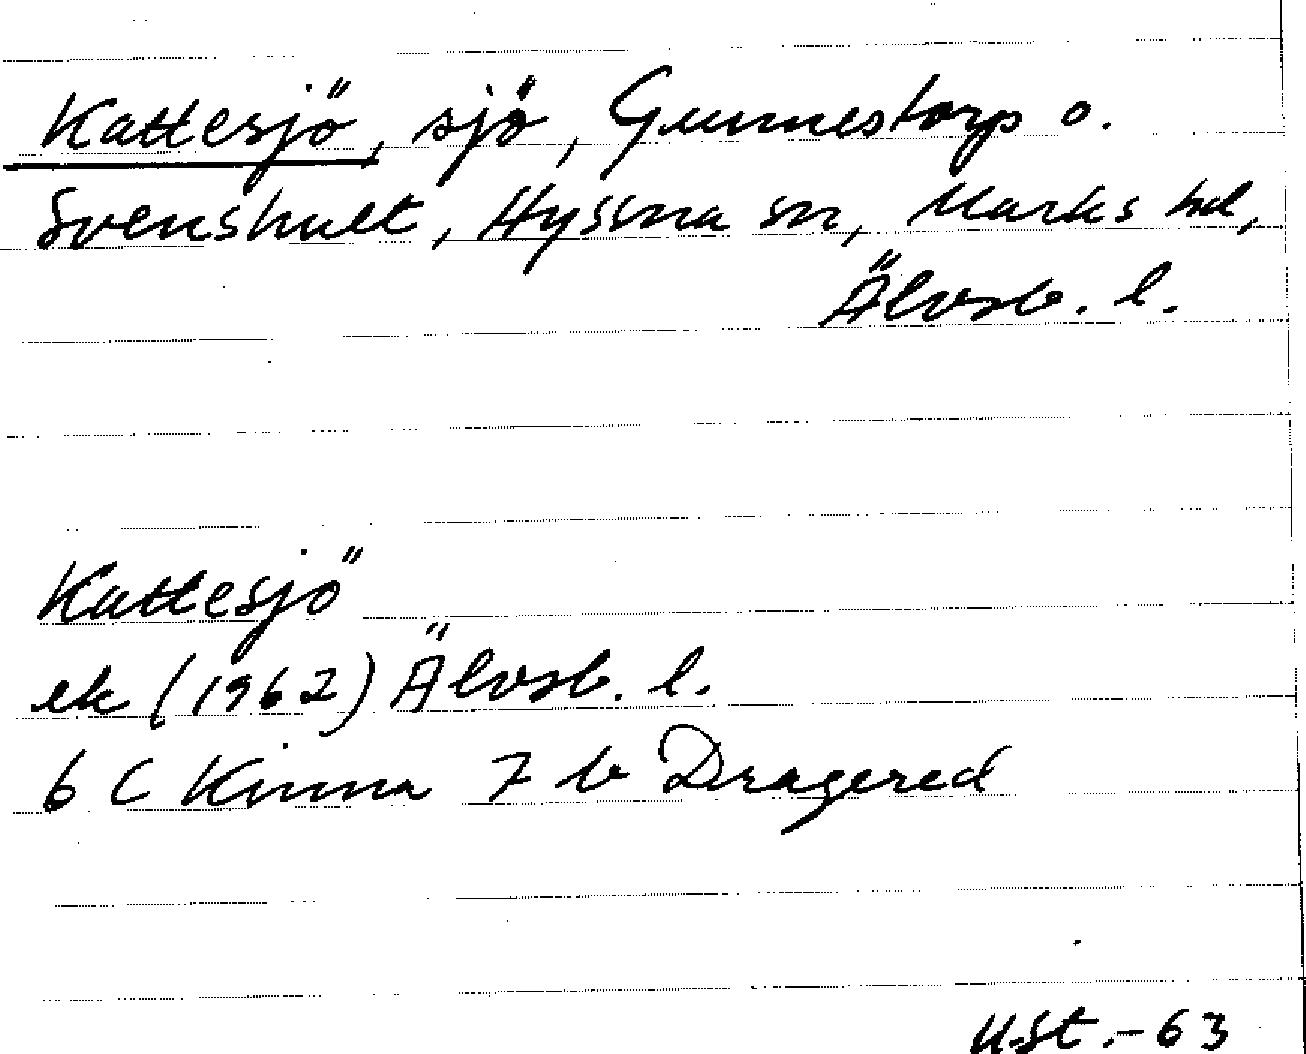 Kattesjö, sjö, Gunnestorp o.
Svenshult, Hyssna sn, Marks hd,
Älvsb. l.
Kattesjö
ek (1962) Älvsb. l.
6 C Kinna 7 b Dragered
U.St.-63